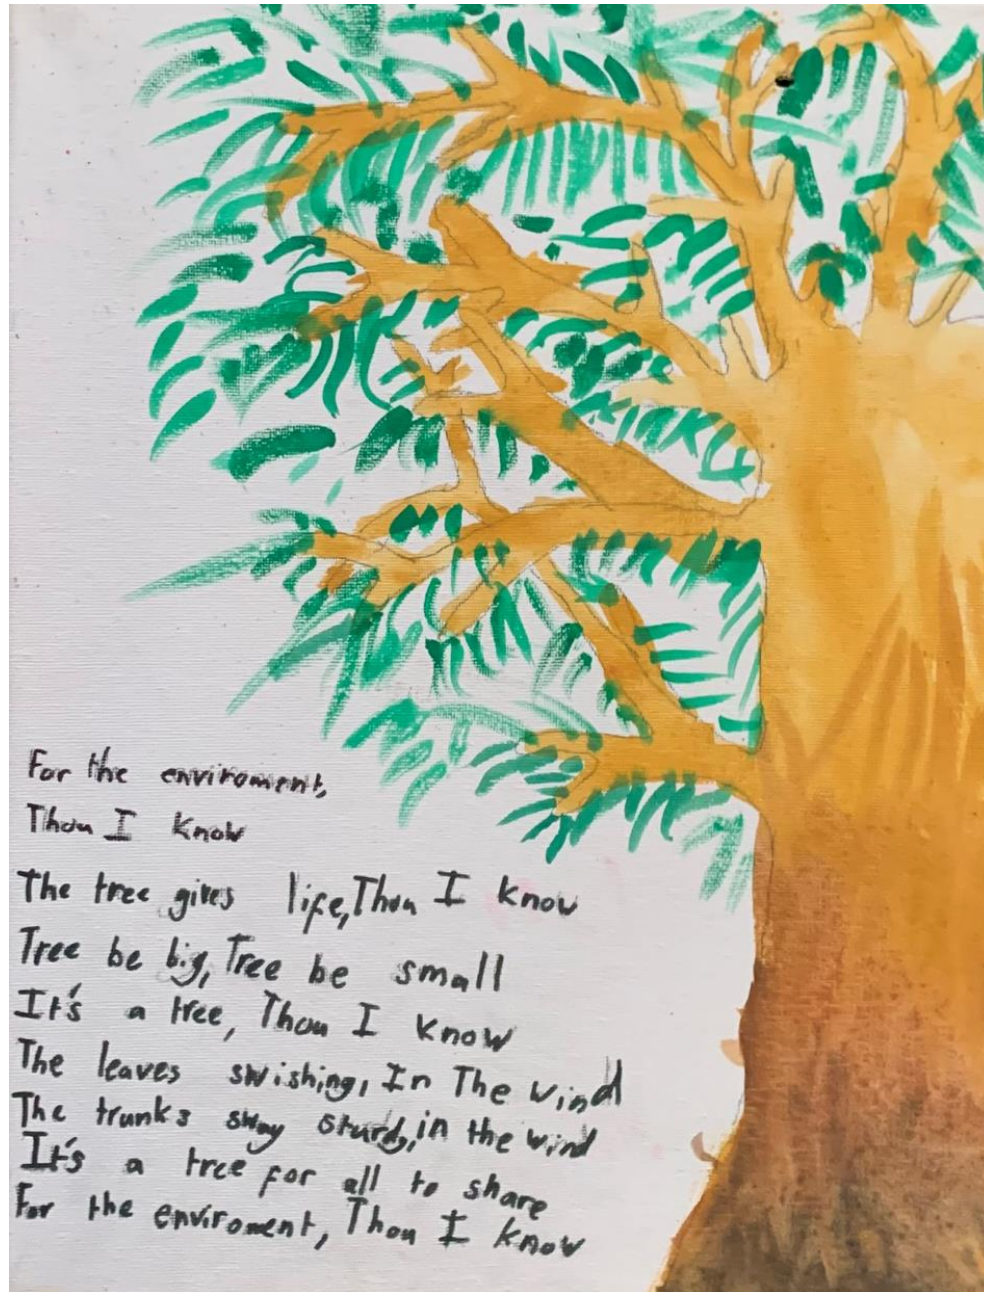 For the enviroment,
Thou I know
The tree gives life, Thou I know
Tree be big, Tree be small
It's a tree, Thou I know
The leaves swishing, In The wind
The trunks stay sturdy, in the wind
It's a tree for all to share
For the enviroment, Thou I know